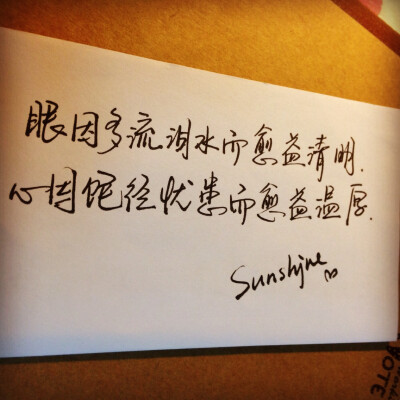 眼因多流泪水而愈益清明.
心因饱经忧患而愈益温厚.
Sunshine
OTE